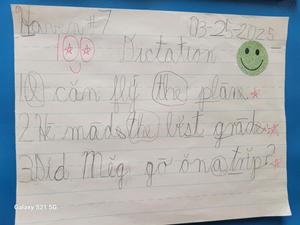 #7 03-25-2025
100
Dictation
1.I căn flȳ the plāne
2.Hē māde the bĕst grāde
3.Did Mĕg gō ŏn a trĭp?
Galaxy S21 5G